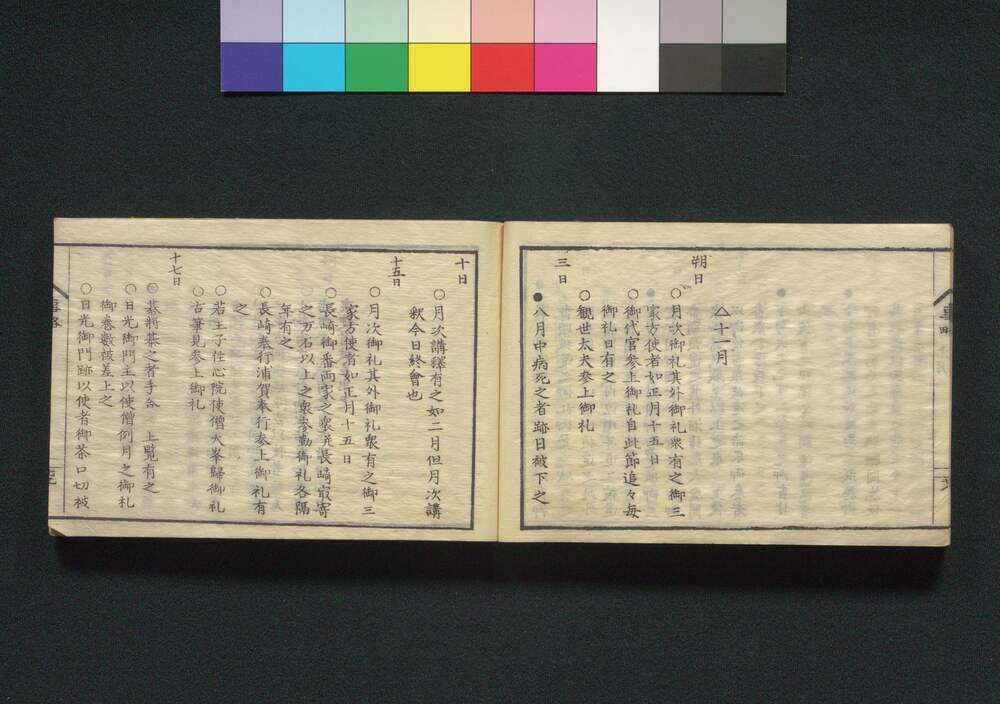 △十一月
朔日
○月次御礼其外御礼衆有之御三
家方使者如正月十五日
○御代官参上御礼自此節追々毎
御礼日有之
○観世太夫参上御礼
三日
●八月中病死之者跡目被下之
十日
○月次講釋有之如二月但月次講
釈今日終會也
十五日
○月次御礼其外御礼衆有之御三
家方使者如正月十五日
○長崎御番両家之衆并長崎最寄
之万石以上之衆参勤御礼各隔
年有之
○長崎奉行浦賀奉行参上御礼有
之
○若王子住心院使僧大峯歸御礼
○古筆見参上御礼
十七日
○碁将棊之者手合 上覧有之
○日光御門主以使僧例月之御札
御巻數被差上之
○日光御門跡以使者御茶口切被